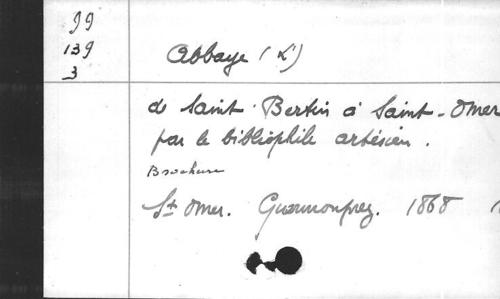 99
139
3
Abbaye (L')
de Saint-Bertin à Saint-Omer
par le bibliophile artésien.
Brochure
St Omer. Guermonprez. 1868